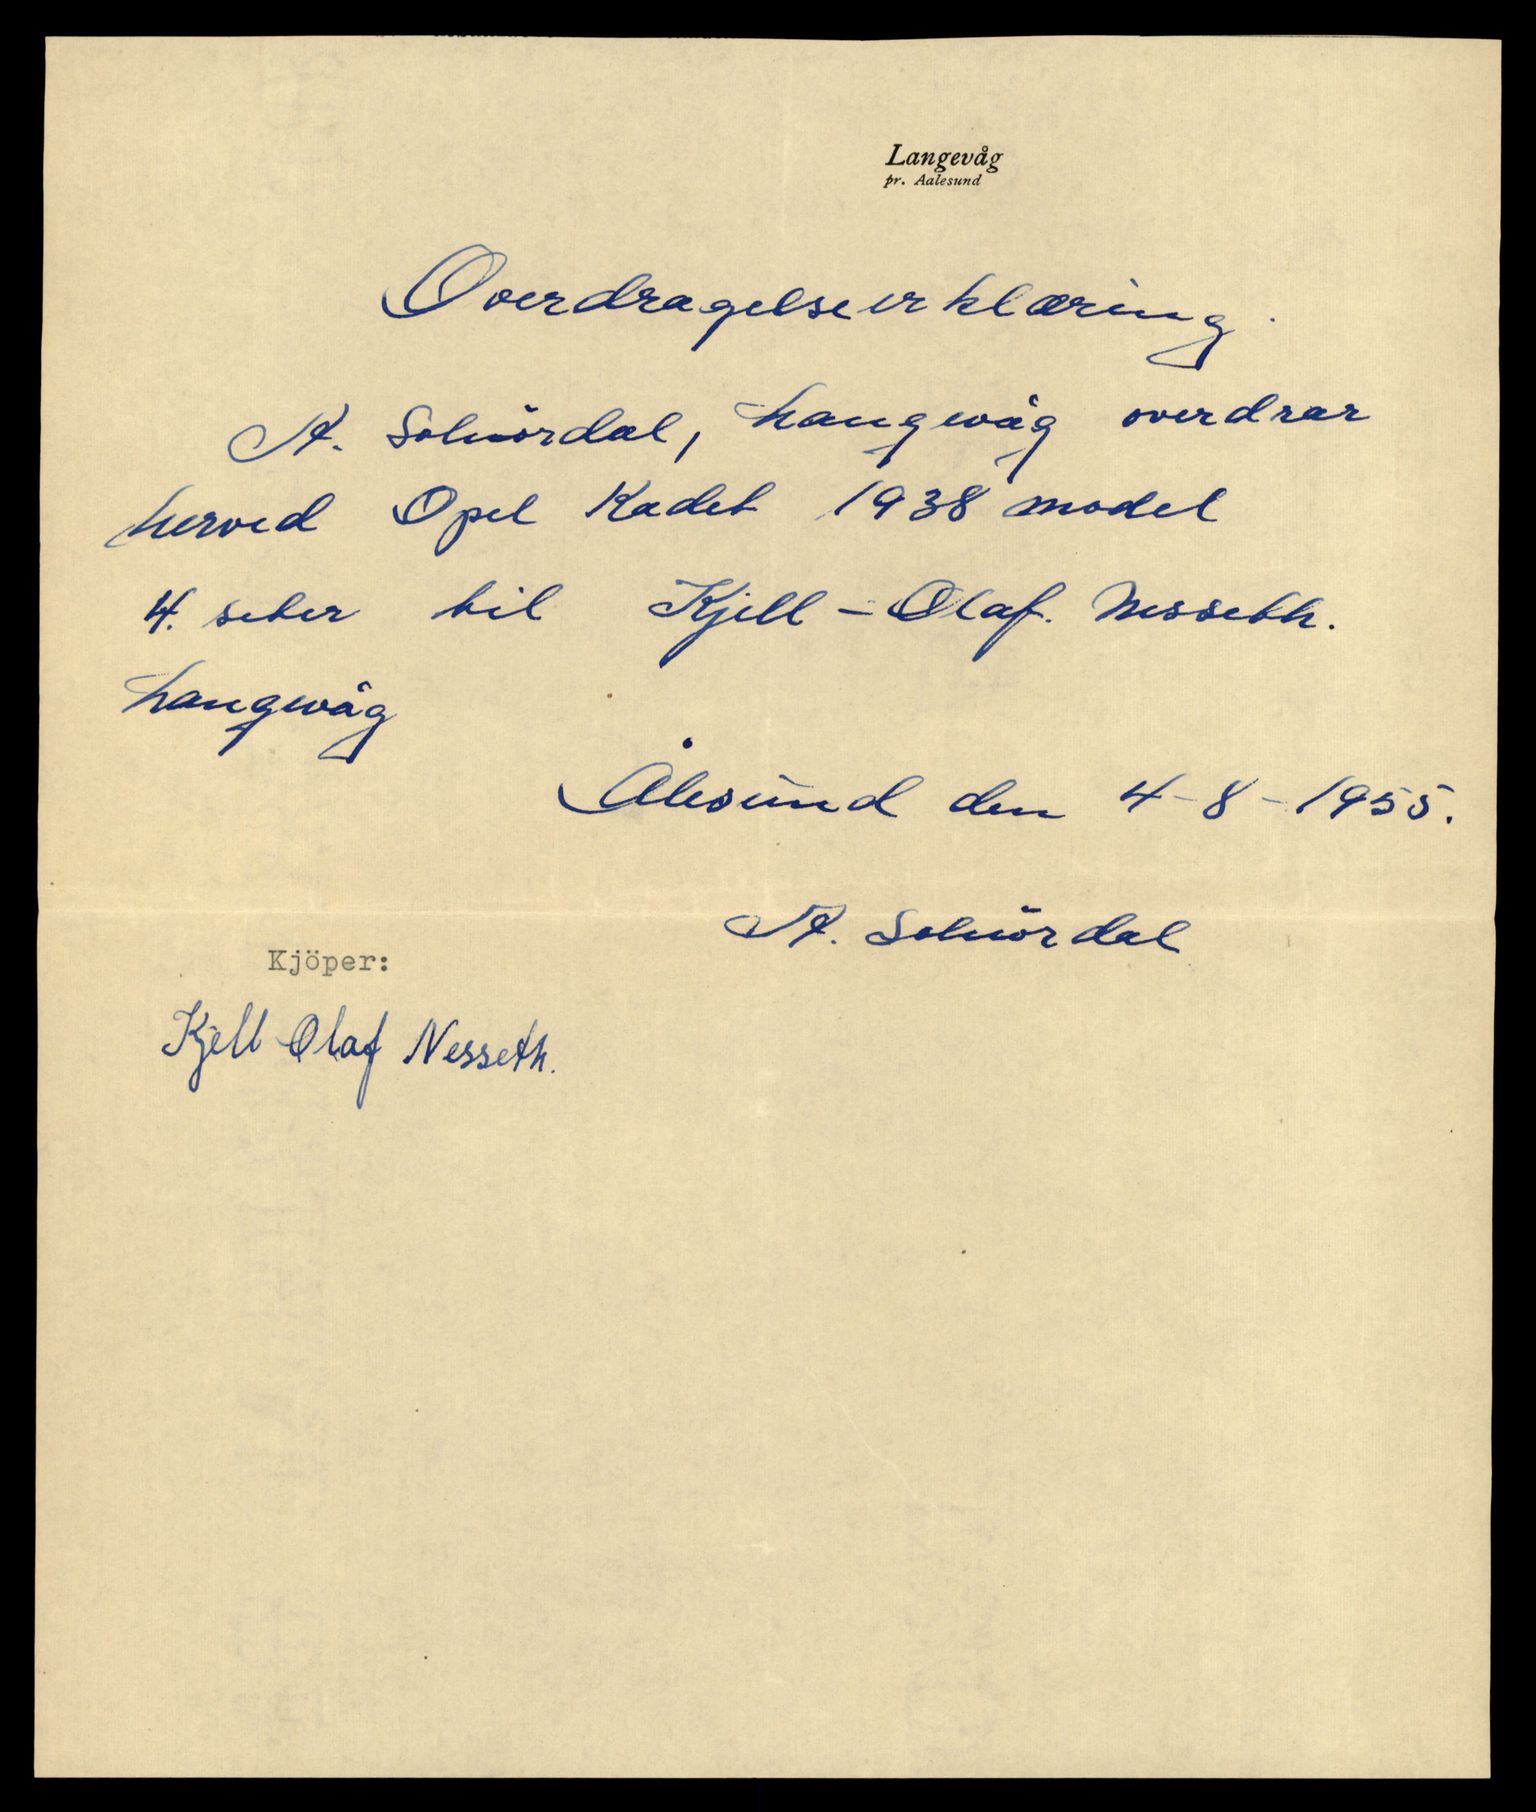 Langevåg
pr. Aalesund
Overdragelseserklæring.
A. Solnørdal, Langevåg overdrar
herved Opel Kadet 1938 model
4. seter til Kjell - Olaf. Nesseth.
Langevåg
Ålesund den 4-8-1955.
A. Solnørdal
Kjöper:
Kjell Olaf Nesseth.